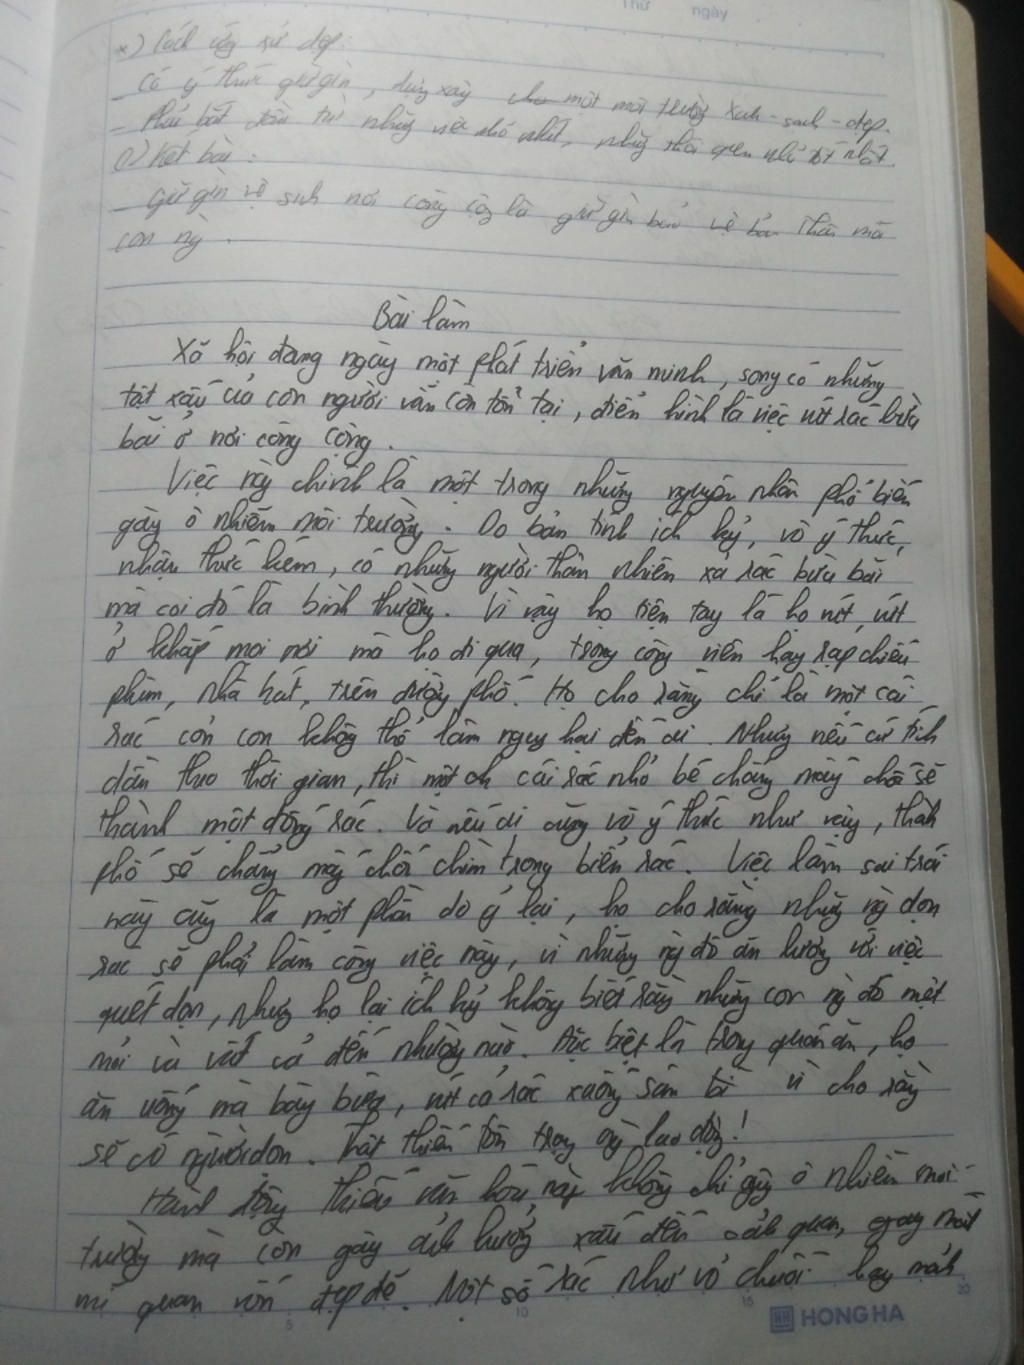 Thứ ngày
*) Cách ứng xử đẹp:
- Có ý thức giữ gìn, dựng xây một môi trường xanh - sạch - đẹp.
- Phải bắt đầu từ những việc nhỏ nhất, những thói quen nhỏ nhất.
Kết bài:
- Giữ gìn vệ sinh nơi công cộng là giữ gìn bảo vệ bản thân mỗi
con ng.
Bài làm
Xã hội đang ngày một phát triển văn minh, song có những
tật xấu của con người vẫn còn tồn tại, điển hình là việc vứt rác bừa
bãi ở nơi công cộng.
Việc này chính là một trong những nguyên nhân phổ biến
gây ô nhiễm môi trường. Do bản tính ích kỷ, vô ý thức,
nhận thức kém, có những người thản nhiên xả rác bừa bãi
mà coi đó là bình thường. Vì vậy họ tiện tay là họ vứt, vứt
ở khắp mọi nơi mà họ đi qua, trong công viên hay rạp chiếu
phim, nhà hát, trên đường phố. Họ cho rằng chỉ là một cái
rác cỏn con không thể làm nguy hại đến ai. Nhưng nếu cứ tích
dần theo thời gian, thì một cái rác nhỏ bé chẳng mấy chốc sẽ
thành một đống rác. Và nếu ai cũng vô ý thức như vậy, thành
phố sẽ chẳng mấy chốc chìm trong biển rác. Việc làm sai trái
này cũng là một phần do ỷ lại, họ cho rằng những ng dọn
rác sẽ phải làm công việc này, vì những ng đó ăn lương với việc
quét dọn, nhưng họ lại ích kỷ không biết rằng những con ng đó mệt
mỏi và vất vả đến nhường nào. Đặc biệt là trong quán ăn, họ
ăn uống mà bày bừa, vứt cả rác xuống sàn vì cho rằng
sẽ có người dọn. Thật thiếu tôn trọng ng lao động!
Hành động thiếu văn hóa này không chỉ gây ô nhiễm môi
trường mà còn gây ảnh hưởng xấu đến cảnh quan, gây mất
mĩ quan vốn đẹp đẽ. Một số rác như vỏ chuối hay mảnh
5 10 15 20
HH HONG HA